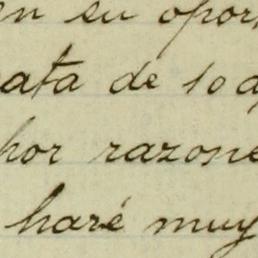 en su opor
ata de 10 d
por razone
haré muy